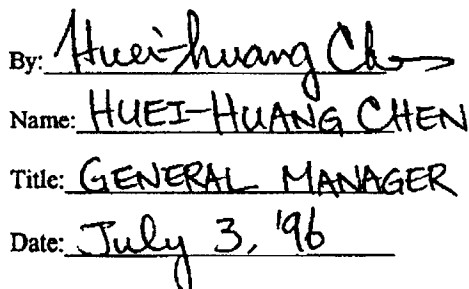 By: Huei-huang Chen
Name: HUEI-HUANG CHEN
Title: GENERAL MANAGER
Date: July 3, '96